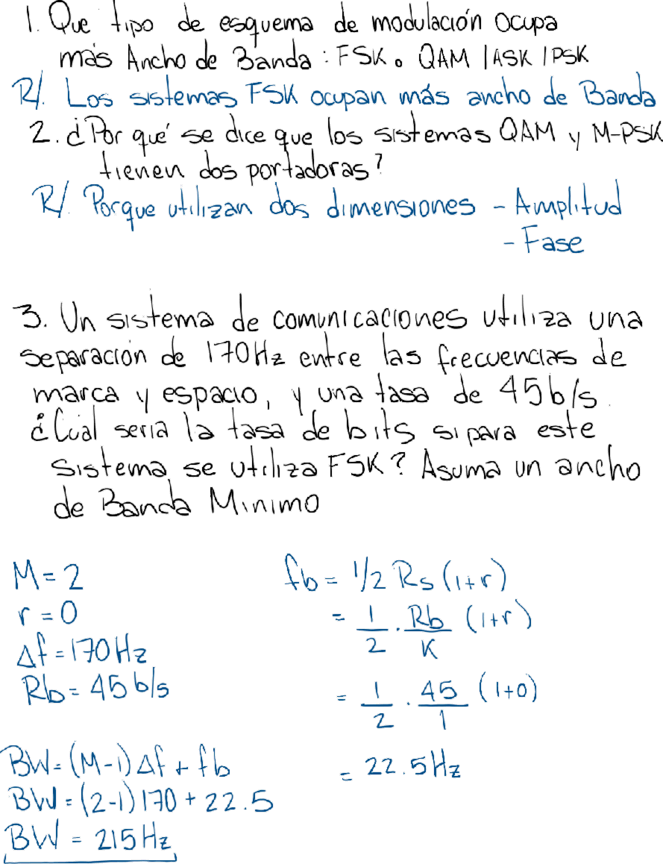 1. Que tipo de esquema de modulación ocupa
más Ancho de Banda : FSK o QAM | ASK | PSK
R/. Los sistemas FSK ocupan más ancho de Banda
2. ¿Por qué se dice que los sistemas QAM y M-PSK
tienen dos portadoras?
R/. Porque utilizan dos dimensiones - Amplitud
- Fase
3. Un sistema de comunicaciones utiliza una
separación de 170Hz entre las frecuencias de
marca y espacio, y una tasa de 45b/s.
¿Cual seria la tasa de bits si para este
sistema se utiliza FSK? Asuma un ancho
de Banda Minimo
M = 2
r = 0
Δf = 170Hz
Rb = 45 b/s
BW = (M-1) Δf + fb
BW = (2-1) 170 + 22.5
BW = 215Hz
fb = 1/2 Rs (1+r)
= 1/2 · Rb/K (1+r)
= 1/2 · 45/1 (1+0)
= 22.5Hz